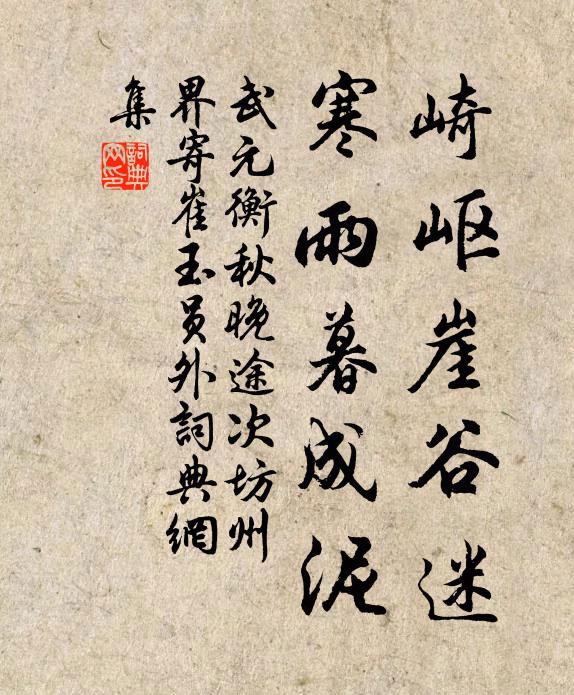 崎岖崖谷迷
寒雨暮成泥
武元衡秋晚途次坊州
界寄崔玉員外詞典網
集
詞典网印